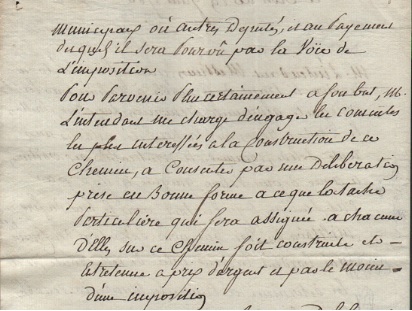 municipaux où autres Deputés, et au Payement
duquel il sera Pourvû par la Voïe de
L'imposition
Pour Parvenir Plus certainement a son but, M.
L'intendant me charge d'engager les consuls
les plus interessés a la Construction de ce
Chemin, a Consentir par une Deliberation
prise en Bonne forme a ce que la tache
Particuliere qui sera assignée a chacune
D'Elles sur ce Chemin soit construite et
Entretenue a prix d'argent et par le moien
d'une imposition